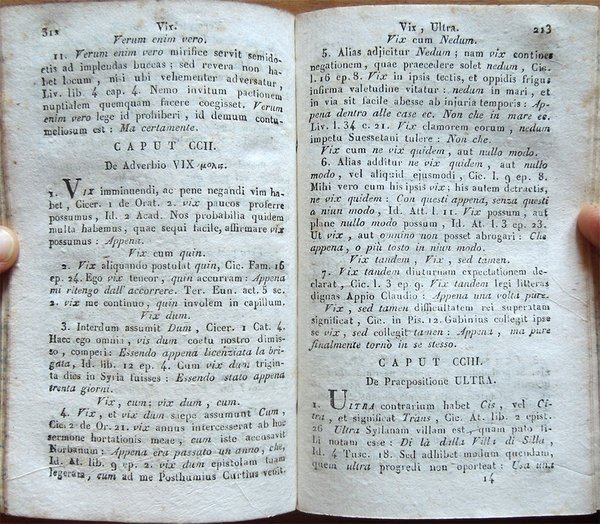 312 Vix.
Verum enim vero.
11. Verum enim vero mirifice servit semido-
ctis ad implendas buccas; sed revera non ha-
bet locum, nisi ubi vehementer adversatur,
Liv. lib. 4 cap. 4. Nemo invitum pactionem
nuptialem quemquam facere coegisset. Verum
enim vero lege id prohiberi, id demum contu-
meliosum est: Ma certamente.
CAPUT CCII.
De Adverbio VIX μολις.
1. VIX imminuendi, ac pene negandi vim ha-
bet, Cicer. 1 de Orat. 2. vix paucos proferre
possumus, Id. 2 Acad. Nos probabilia quidem
multa habemus, quae sequi facile, affirmare vix
possumus: Appena.
Vix cum quin.
2. Vix aliquando postulat quin, Cic. Fam. 16
ep. 24. Ego vix teneor, quin accurram: Appena
mi ritengo dall'accorrere. Ter. Eun. act. 5 sc.
2. vix me continuo, quin involem in capillum.
Vix dum.
3. Interdum assumit Dum, Cicer. 1 Cat. 4.
Haec ego omnia, vis dum coetu nostro dimis-
so, comperi: Essendo appena licenziata la bri-
gata, Id. lib. 12 ep. 4. Cum vix dum trigin-
ta dies in Syria fuisses: Essendo stato appena
trenta giorni.
Vix, cum; vix dum, cum.
4. Vix, et vix dum saepe assumunt Cum,
Cic. 2 de Or. 21. vix annus intercesserat ab hoc
sermone hortationis meae, cum iste accusavit
Norbanum: Appena era passato un anno, che,
Id. At. lib. 9 ep. 2. vix dum epistolam tuam
legeram, cum ad me Posthumius Curtius venit.
Vix, Ultra. 213
Vix cum Nedum.
5. Alias adjicitur Nedum; nam vix contines
negationem, quae praecedere solet nedum, Cic.
l. 16 ep. 8. Vix in ipsis tectis, et oppidis frigus
infirma valetudine vitatur: nedum in mari, et
in via sit facile abesse ab injuria temporis: Ap-
pena dentro alle case ec. Non che in mare ec.
Liv. l. 34 c. 21. Vix clamorem eorum, nedum
impetu Suessetani tulere: Non che.
Vix cum ne vix quidem, aut nullo modo.
6. Alias additur ne vix quidem, aut nullo
modo, vel aliquid ejusmodi, Cic. l. 9 ep. 8.
Mihi vero cum his ipsis vix; his autem detractis,
ne vix quidem: Con questi appena, senza questi
a niun modo, Id. Att. l. 11. Vix possum, aut
plane nullo modo possum, Id. At. l. 3 ep. 23.
Ut vix, aut omnino non posset abrogari: Che
appena, o più tosto in niun modo.
Vix tandem, Vix, sed tamen.
7. Vix tandem diuturnam expectationem de-
clarat, Cic. l. 3 ep. 9. Vix tandem legi litteras
dignas Appio Claudio: Appena una volta pure.
Vix, sed tamen difficultatem rei superatam
significat, Cic. in Pis. 12. Gabinius collegit ipse
se vix, sed collegit tamen: Appena, ma pure
finalmente tornò in se stesso.
CAPUT CCIII.
De Praepositione ULTRA.
1. ULTRA contrarium habet Cis, vel Ci-
tra, et significat Trans, Cic. At. lib. 2 epist.
26 Ultra Syllanam villam est, quam puto ti-
bi notam esse: Di là dalla Villa di Silla,
Id. 4 Tusc. 18. Sed adhibet modum quendam,
quem ultra progredi non oporteat: Usa una
14